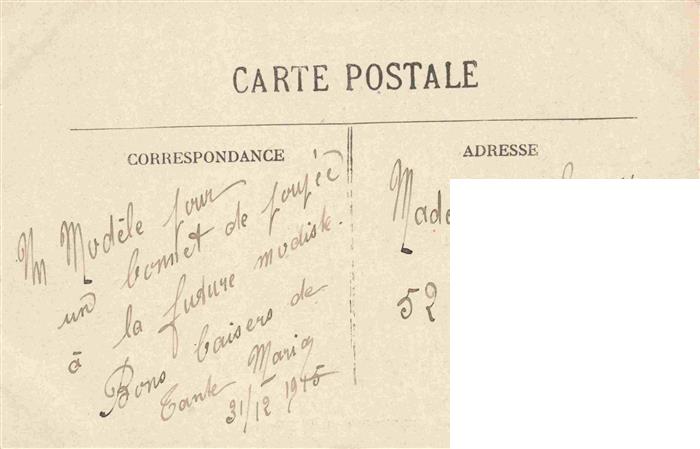 CARTE POSTALE
CORRESPONDANCE
Modèle pour
un bonnet de poupée
à la future modiste.
Bons baisers de
Tante Maria
31/12 1915
ADRESSE
52